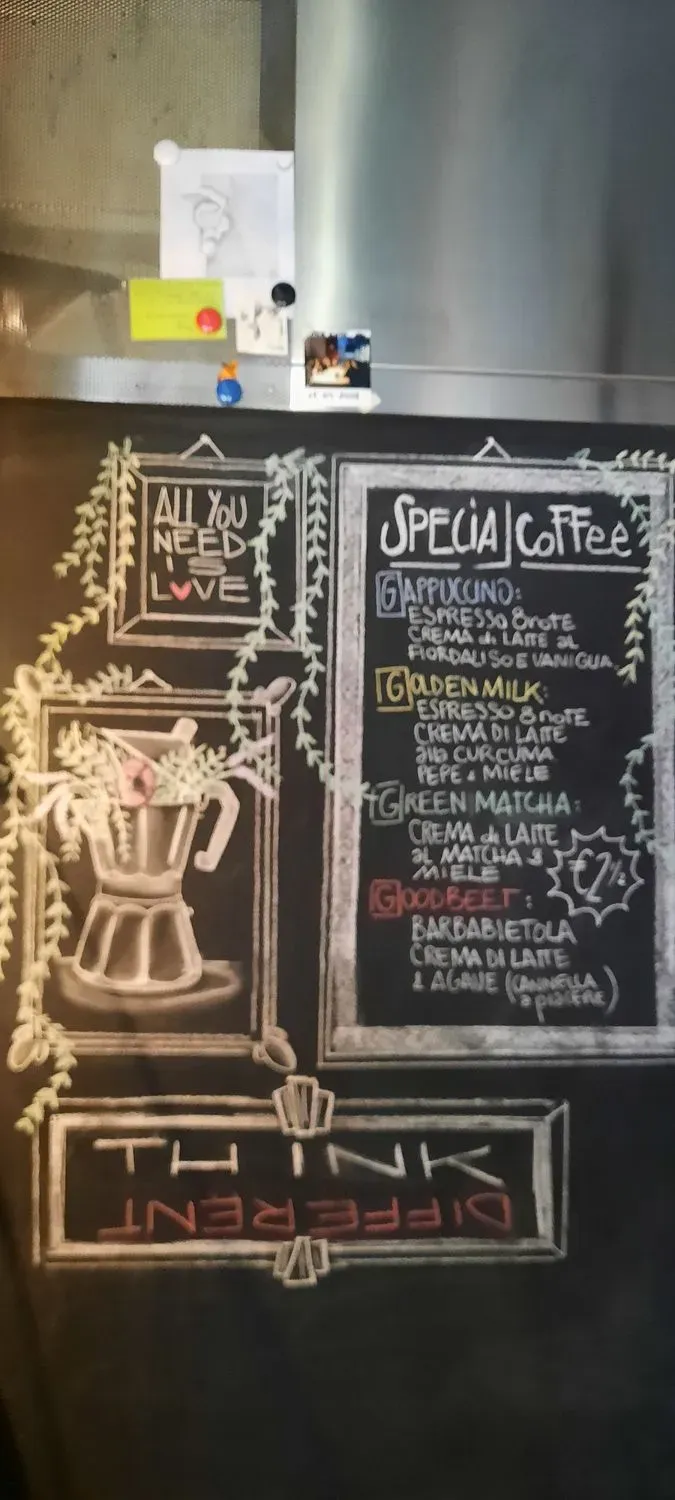 ALL YOU
NEED
IS
LOVE
SPECIAL COFFEE
GAPPUCCINO:
ESPRESSO 8NOTE
CREMA di LATTE AL
FIORDALISO E VANIGLIA
GOLDEN MILK:
ESPRESSO 8NOTE
CREMA DI LATTE
alla CURCUMA
PEPE e MIELE
GREEN MATCHA:
CREMA di LATTE
al MATCHA &
MIELE
€2½
GOODBEET:
BARBABIETOLA
CREMA DI LATTE
& AGAVE (CANNELLA
a piacere)
THINK
DIFFERENT